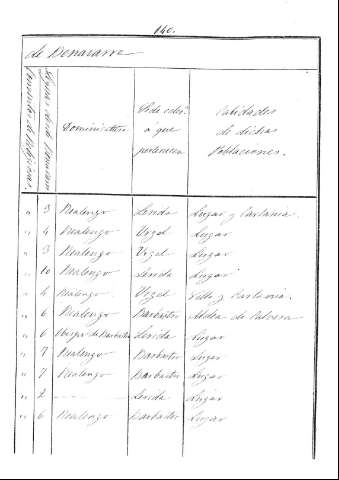 140.
de Benavarre
Conventos de Religiosas.
Dominicatura
Sede
á que
pertenecen
Calidades
de dichas
Poblaciones.
" 3 Realengo Lerida Lugar y
" 4 Realengo Urgel Lugar
" 3 Realengo Urgel Lugar
" 10 Realengo Lerida Lugar
" 4 Realengo Urgel Villa y
" 6 Realengo Barbastro Aldea de
" 6 Obispo de Barbastro Lerida Lugar
" 7 Realengo Barbastro Lugar
" 7 Realengo Barbastro Lugar
" 2 ---- Lerida Lugar
" 6 Realengo Barbastro Lugar